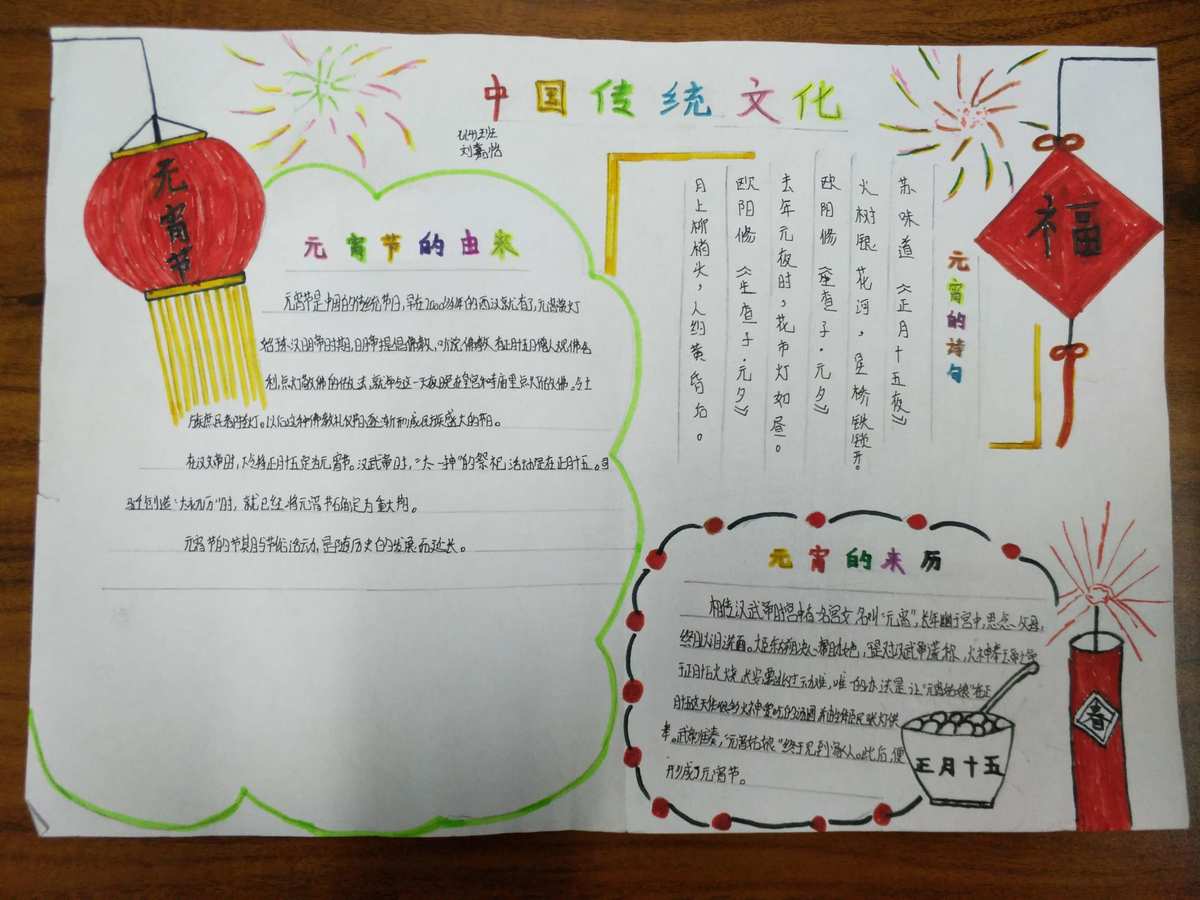 中国传统文化
刘嘉怡
元宵节
元宵节的由来
元宵节是中国的传统节日，早在2000多年的西汉就有了，元宵赏灯
始于东汉明帝时期，明帝提倡佛教，听说佛教有正月十五日僧人观佛舍
利，点灯敬佛的做法，就命令这一天夜晚在皇宫和寺庙里点灯敬佛。令士
族庶民都挂灯。以后这种佛教礼仪节日逐渐形成民族盛大的节日。
在汉文帝时，下令将正月十五定为元宵节。汉武帝时，“太一神”的祭祀活动定在正月十五。司
马迁创造“太初历”时，就已经将元宵节确定为重大节日。
元宵节的节期与节俗活动，是随历史的发展而延长。
元宵的诗句
苏味道《正月十五夜》
火树银花河，星桥铁锁开。
欧阳修《生查子·元夕》
去年元夜时，花市灯如昼。
欧阳修《生查子·元夕》
月上柳梢头，人约黄昏后。
福
元宵的来历
相传汉武帝时宫中有一名宫女，名叫“元宵”，长年幽于宫中，思念父母，
终日以泪洗面。大臣东方朔决心帮助她，于是对汉武帝谎称，火神奉玉帝之命
于正月十五火烧长安，要逃过劫难，唯一的办法是让“元宵姑娘”在正
月十五这天做很多火神爱吃的汤圆，并由全体臣民张灯供
奉。武帝准奏，“元宵姑娘”终于见到家人。此后，便
形成了元宵节。
正月十五
春